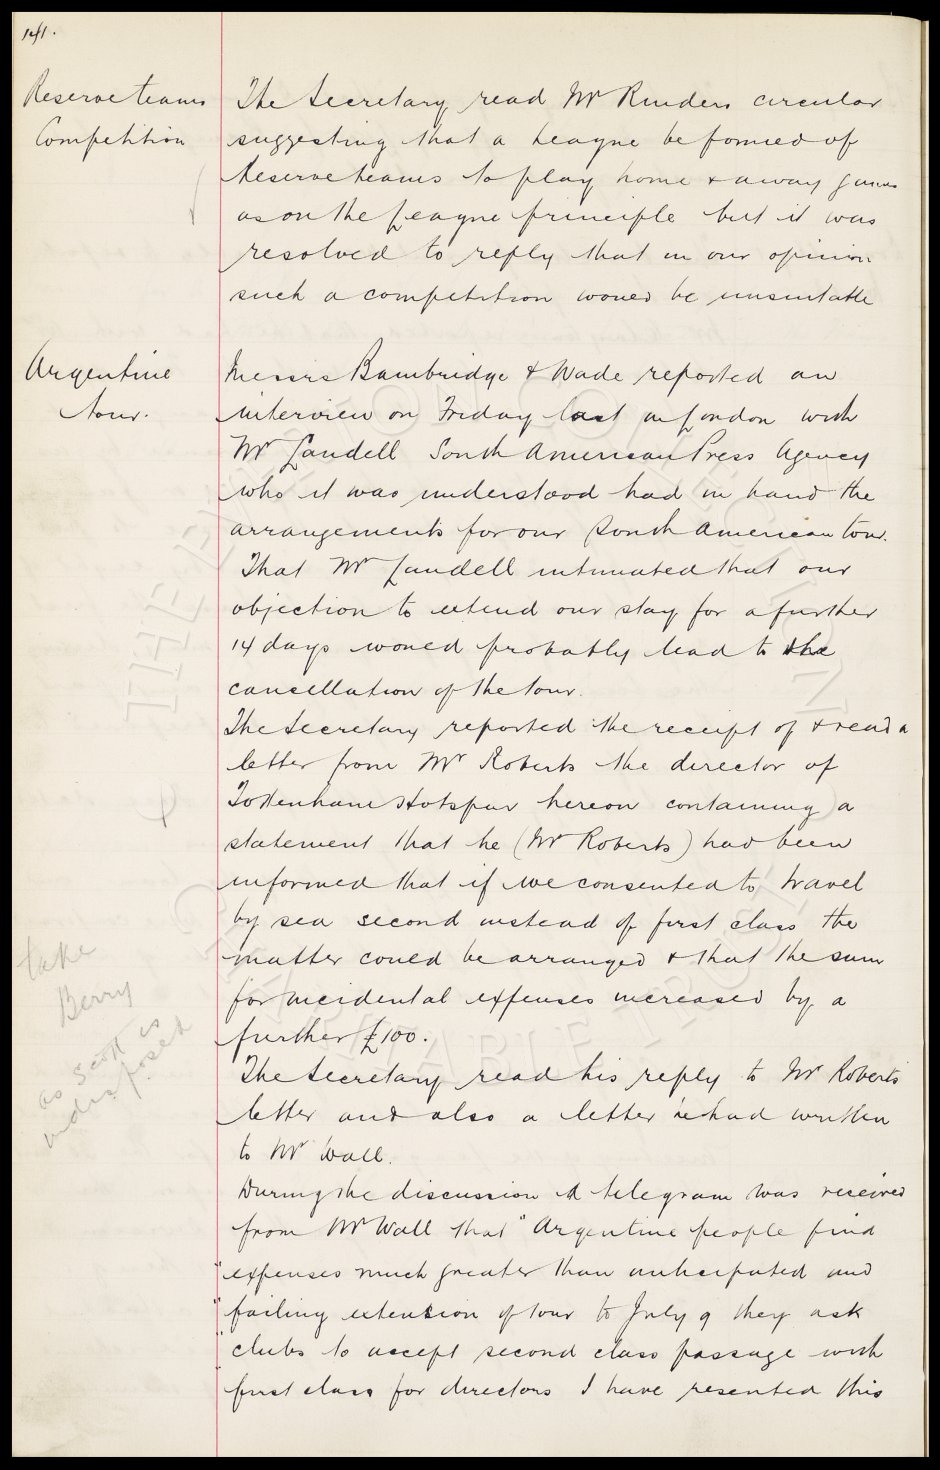 141.
Reserve teams
Competition
The Secretary read Mr Rinders circular
suggesting that a League be formed of
Reserve teams to play home & away games
as on the League principle but it was
resolved to reply that in our opinion
such a competition would be unsuitable
Argentine
tour.
Messrs Bambridge & Wade reported an
interview on Friday last in London with
Mr Landell South American Press Agency
who it was understood had in hand the
arrangements for our South American tour.
That Mr Landell intimated that our
objection to extend our stay for a further
14 days would probably lead to the
cancellation of the tour.
The Secretary reported the receipt of & read a
letter from Mr Roberts the director of
Tottenham Hotspur hereon containing a
statement that he (Mr Roberts) had been
informed that if we consented to travel
by sea second instead of first class the
matter could be arranged & that the sum
for incidental expenses increased by a
further £100.
take
Berry
as Scott is
indisposed
The Secretary read his reply to Mr Roberts
letter and also a letter he had written
to Mr Wall.
During the discussion A telegram was received
from Mr Wall that "Argentine people find
"expenses much greater than anticipated and
"failing extension of tour to July 9 they ask
"clubs to accept second class passage with
first class for directors I have resented this